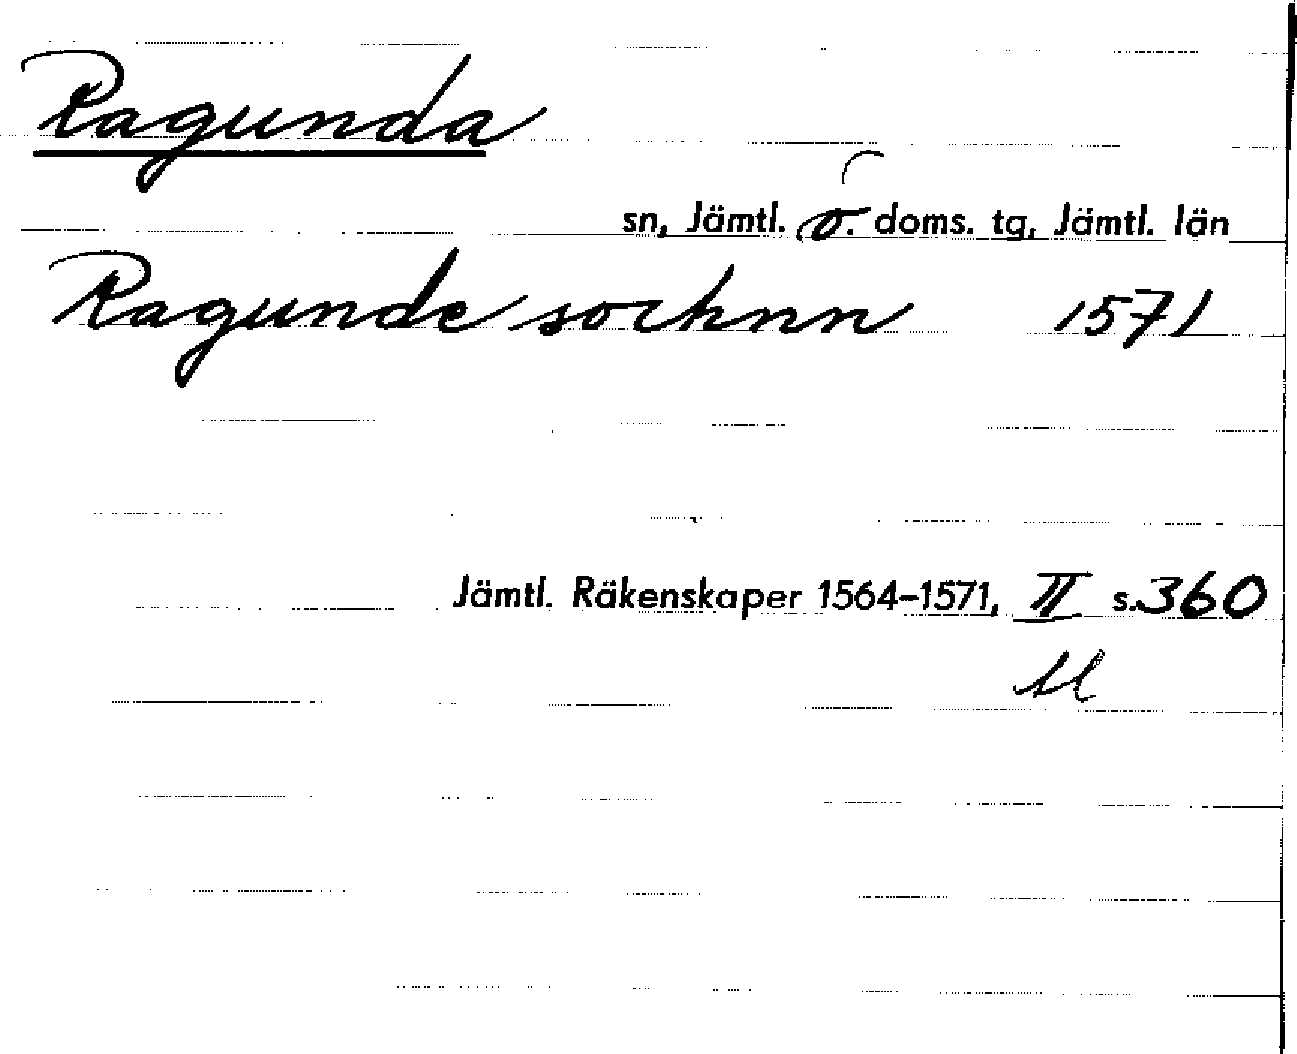 Ragunda
sn, Jämtl. ö. doms. tg, Jämtl. län
Ragunde sochnn 1571
Jämtl. Räkenskaper 1564-1571, II s. 360